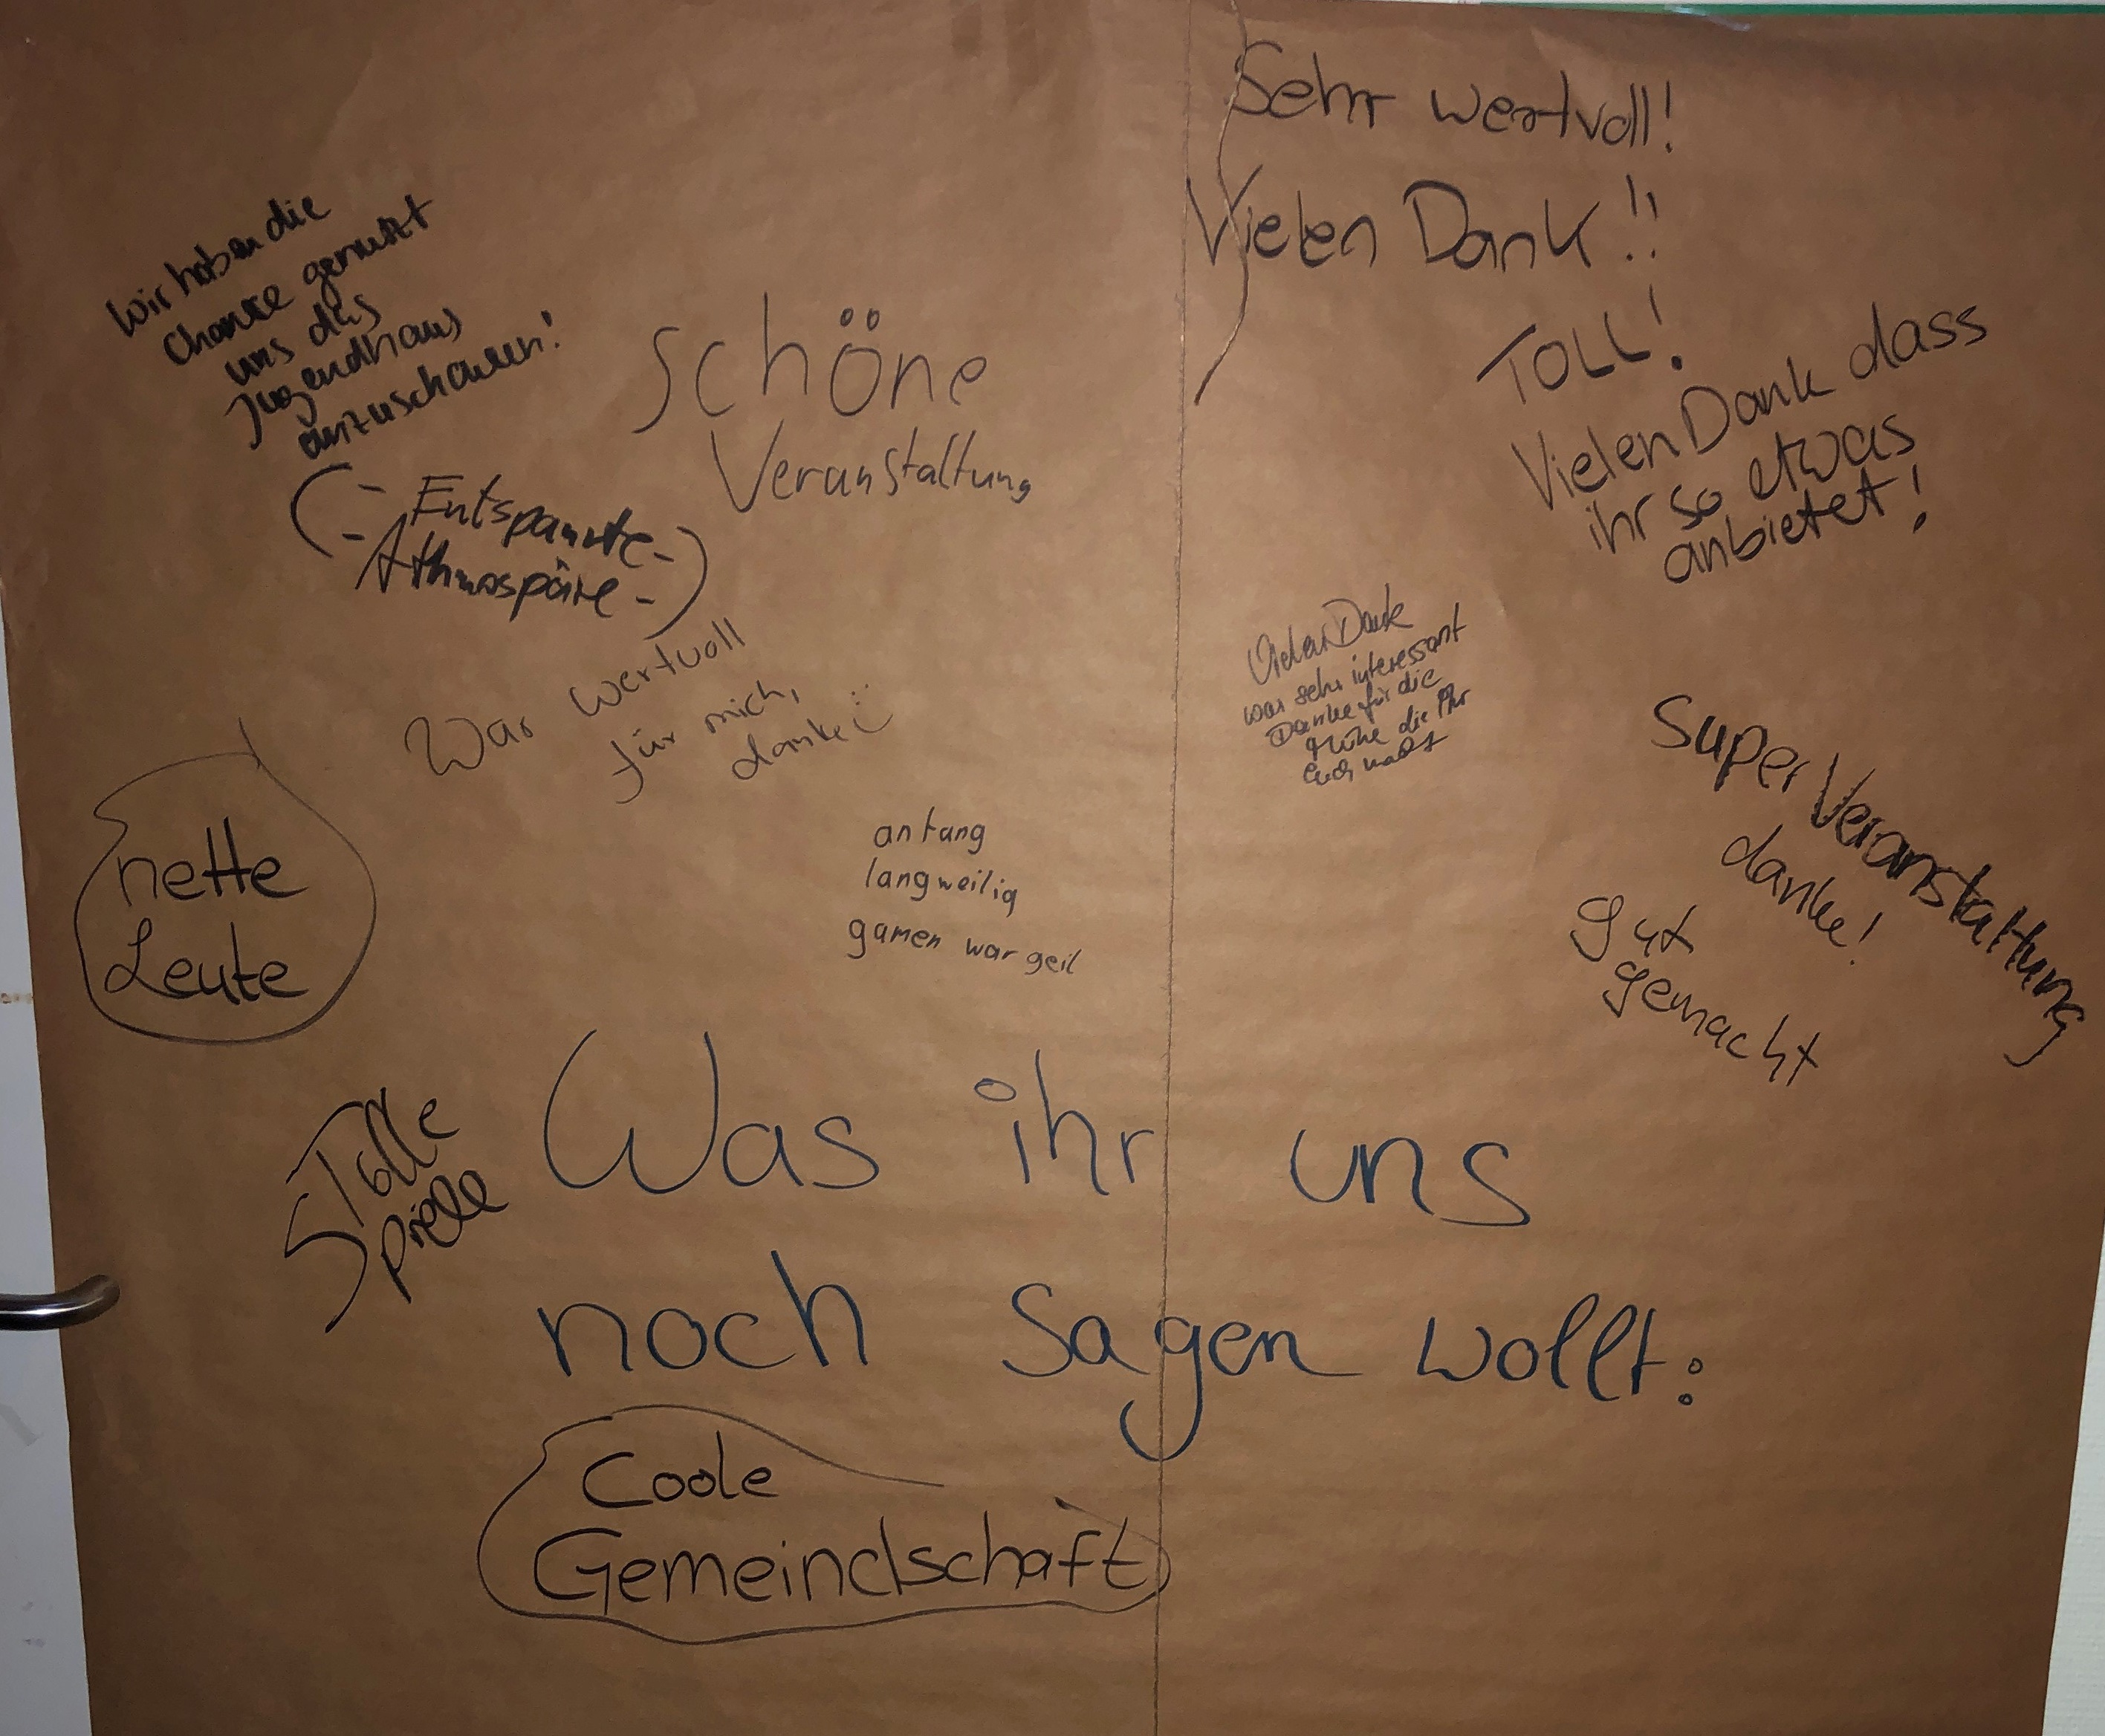 Sehr wertvoll!
Vielen Dank!!
Wir haben die
Chance genutzt
uns das
Jugendhaus
anzuschauen!
Schöne
Veranstaltung
TOLL!
Vielen Dank dass
ihr so etwas
anbietet!
(- Entspannte -)
- Athmospäre -
War wertvoll
für mich,
danke
Vielen Dank
war sehr interessant
Danke für die
Mühe die Ihr
Euch macht
Super Veranstaltung
danke!
gut
gemacht
nette
Leute
anfang
langweilig
gamen war geil
Tolle
Spiele
Was ihr uns
noch sagen wollt:
Coole
Gemeindschaft